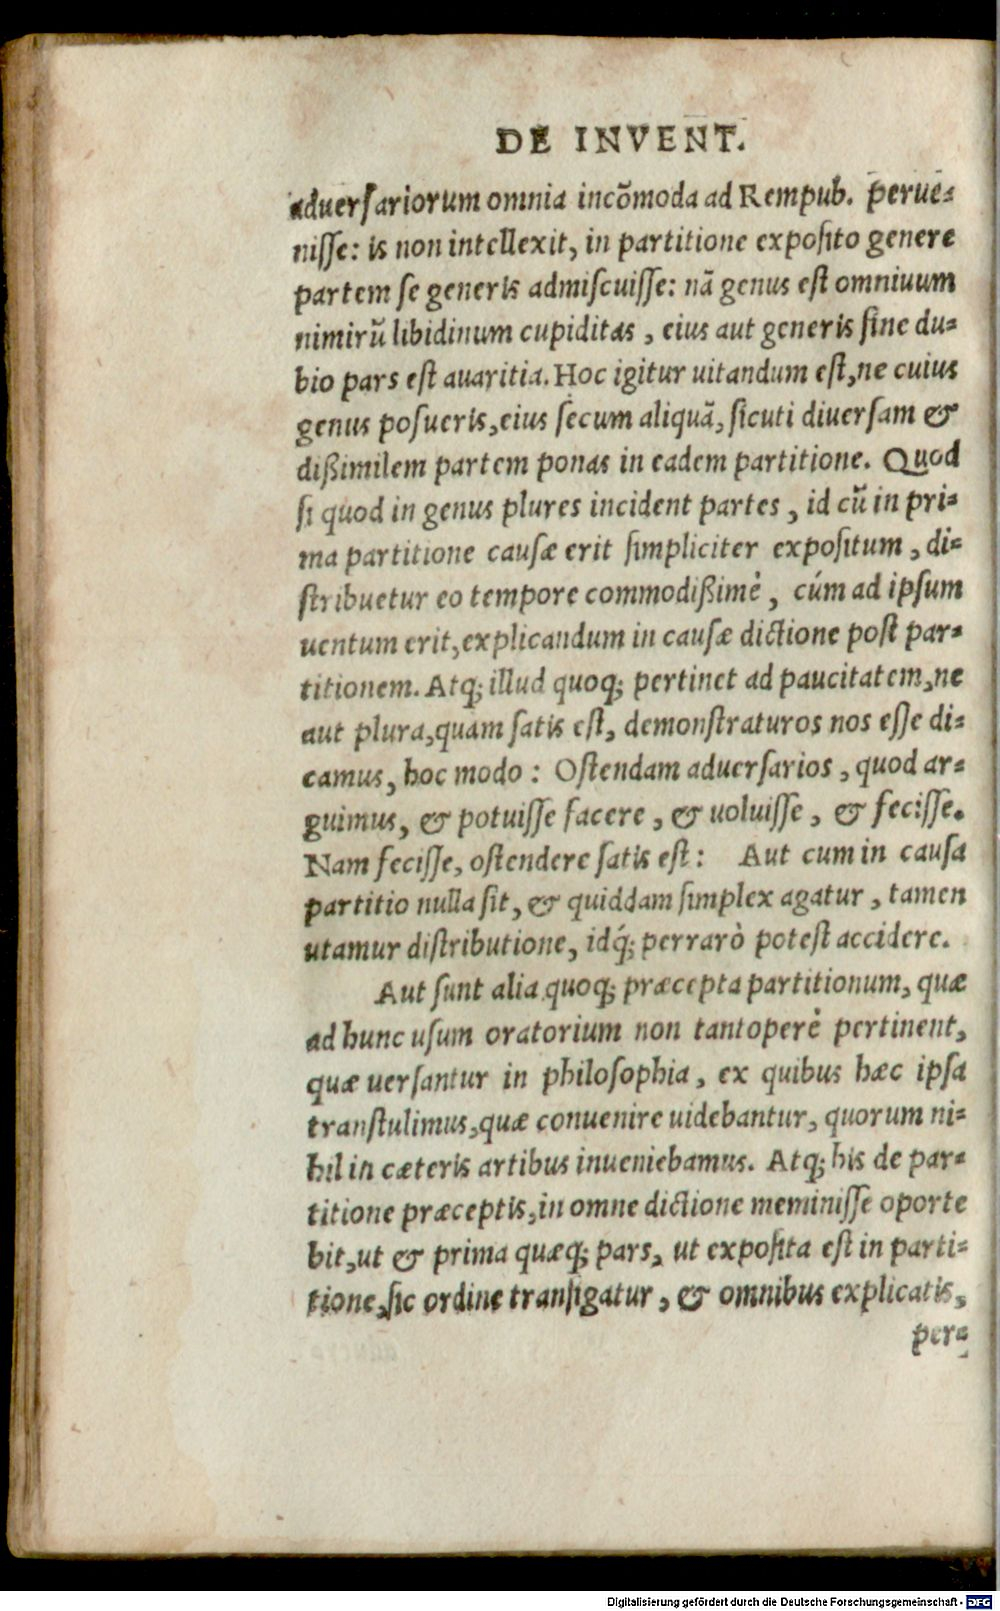 DE INVENT.
aduersariorum omnia incõmoda ad Rempub. perue-
nisse: is non intellexit, in partitione exposito genere
partem se generis admiscuisse: nã genus est omniuum
nimirũ libidinum cupiditas, eius aut generis sine du-
bio pars est auaritia. Hoc igitur uitandum est, ne cuius
genus posueris, eius secum aliquã, sicuti diuersam &
dißimilem partem ponas in eadem partitione. Quod
si quod in genus plures incident partes, id cũ in pri-
ma partitione causæ erit simpliciter expositum, di-
stribuetur eo tempore commodißimè, cúm ad ipsum
uentum erit, explicandum in causæ dictione post par-
titionem. Atq; illud quoq; pertinet ad paucitatem, ne
aut plura, quàm satis est, demonstraturos nos esse di-
camus, hoc modo: Ostendam aduersarios, quod ar-
guimus, & potuisse facere, & uoluisse, & fecisse.
Nam fecisse, ostendere satis est: Aut cum in causa
partitio nulla sit, & quiddam simplex agatur, tamen
utamur distributione, idq́; perrarò potest accidere.
Aut sunt alia quoq; præcepta partitionum, quæ
ad hunc usum oratorium non tantoperè pertinent,
quæ uersantur in philosophia, ex quibus hæc ipsa
transtulimus, quæ conuenire uidebantur, quorum ni-
hil in cæteris artibus inueniebamus. Atq; his de par-
titione præceptis, in omne dictione meminisse oporte
bit, ut & prima quæq; pars, ut exposita est in parti-
tione, sic ordine transigatur, & omnibus explicatis,
per-
Digitalisierung gefördert durch die Deutsche Forschungsgemeinschaft - DFG